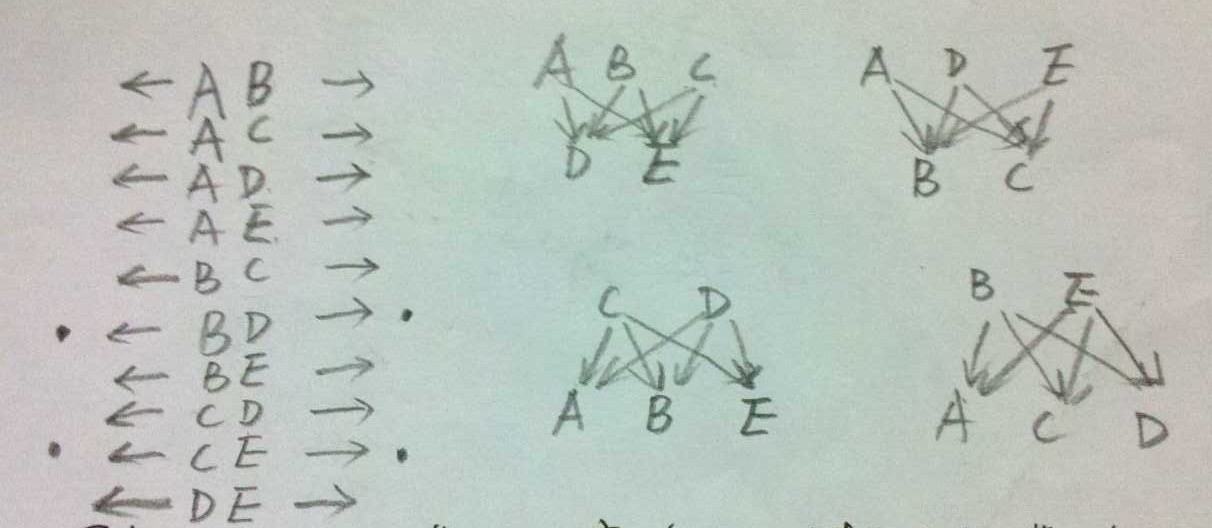 ← A B →
← A C →
← A D →
← A E →
← B C →
• ← B D → •
← B E →
← C D →
• ← C E → •
← D E →
A B C
D E
A D E
B C
C D
A B E
B E
A C D